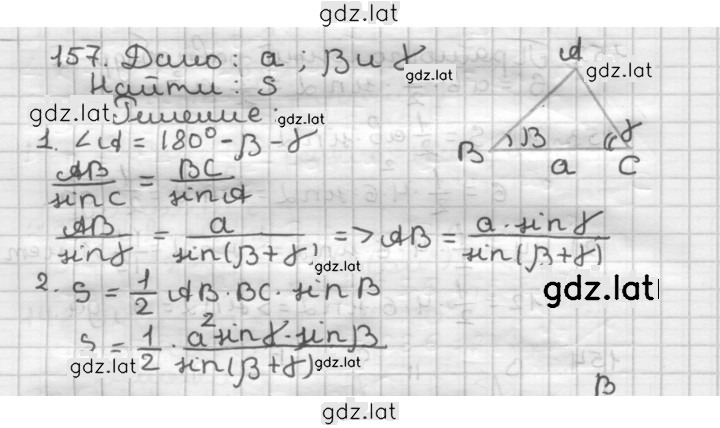 gdz.lat
157. Дано: a; β и γ
gdz.lat
Найти: S
gdz.lat
Решение:
1. ∠A = 180° - β - γ
AB/sin C = BC/sin A
AB/sin γ = a/sin(β + γ) => AB = a · sin γ/sin(β + γ)
gdz.lat
2. S = 1/2 AB · BC · sin B
gdz.lat
S = 1/2 · a² sin γ · sin β/sin(β + γ)
gdz.lat
gdz.lat
A
gdz.lat
B β γ C
a
B
gdz.lat